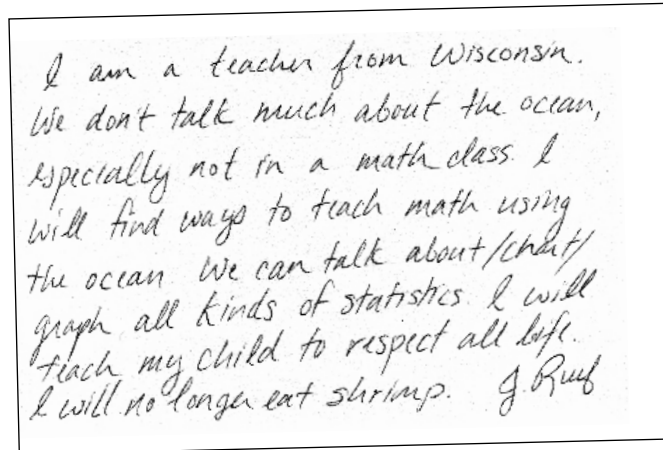 I am a teacher from Wisconsin.
We don't talk much about the ocean,
especially not in a math class. I
will find ways to teach math using
the ocean. We can talk about/chart/
graph all kinds of statistics. I will
teach my child to respect all life.
I will no longer eat shrimp. J.